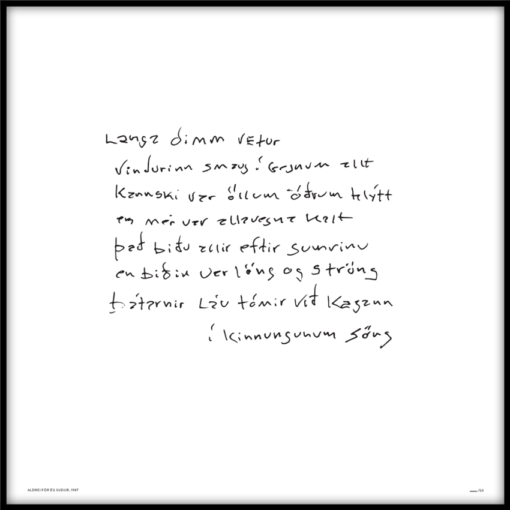 Langa dimm vetur
vindurinn smaug í gegnum allt
Kannski var öllum öðrum hlýtt
en mér var allavegna kalt
það biðu allir eftir sumrinu
en biðin var löng og ströng
bátarnir láu tómir við kajann
í kinnungunum söng
ALDREI FÓR ÉG SUÐUR, 1987
/50